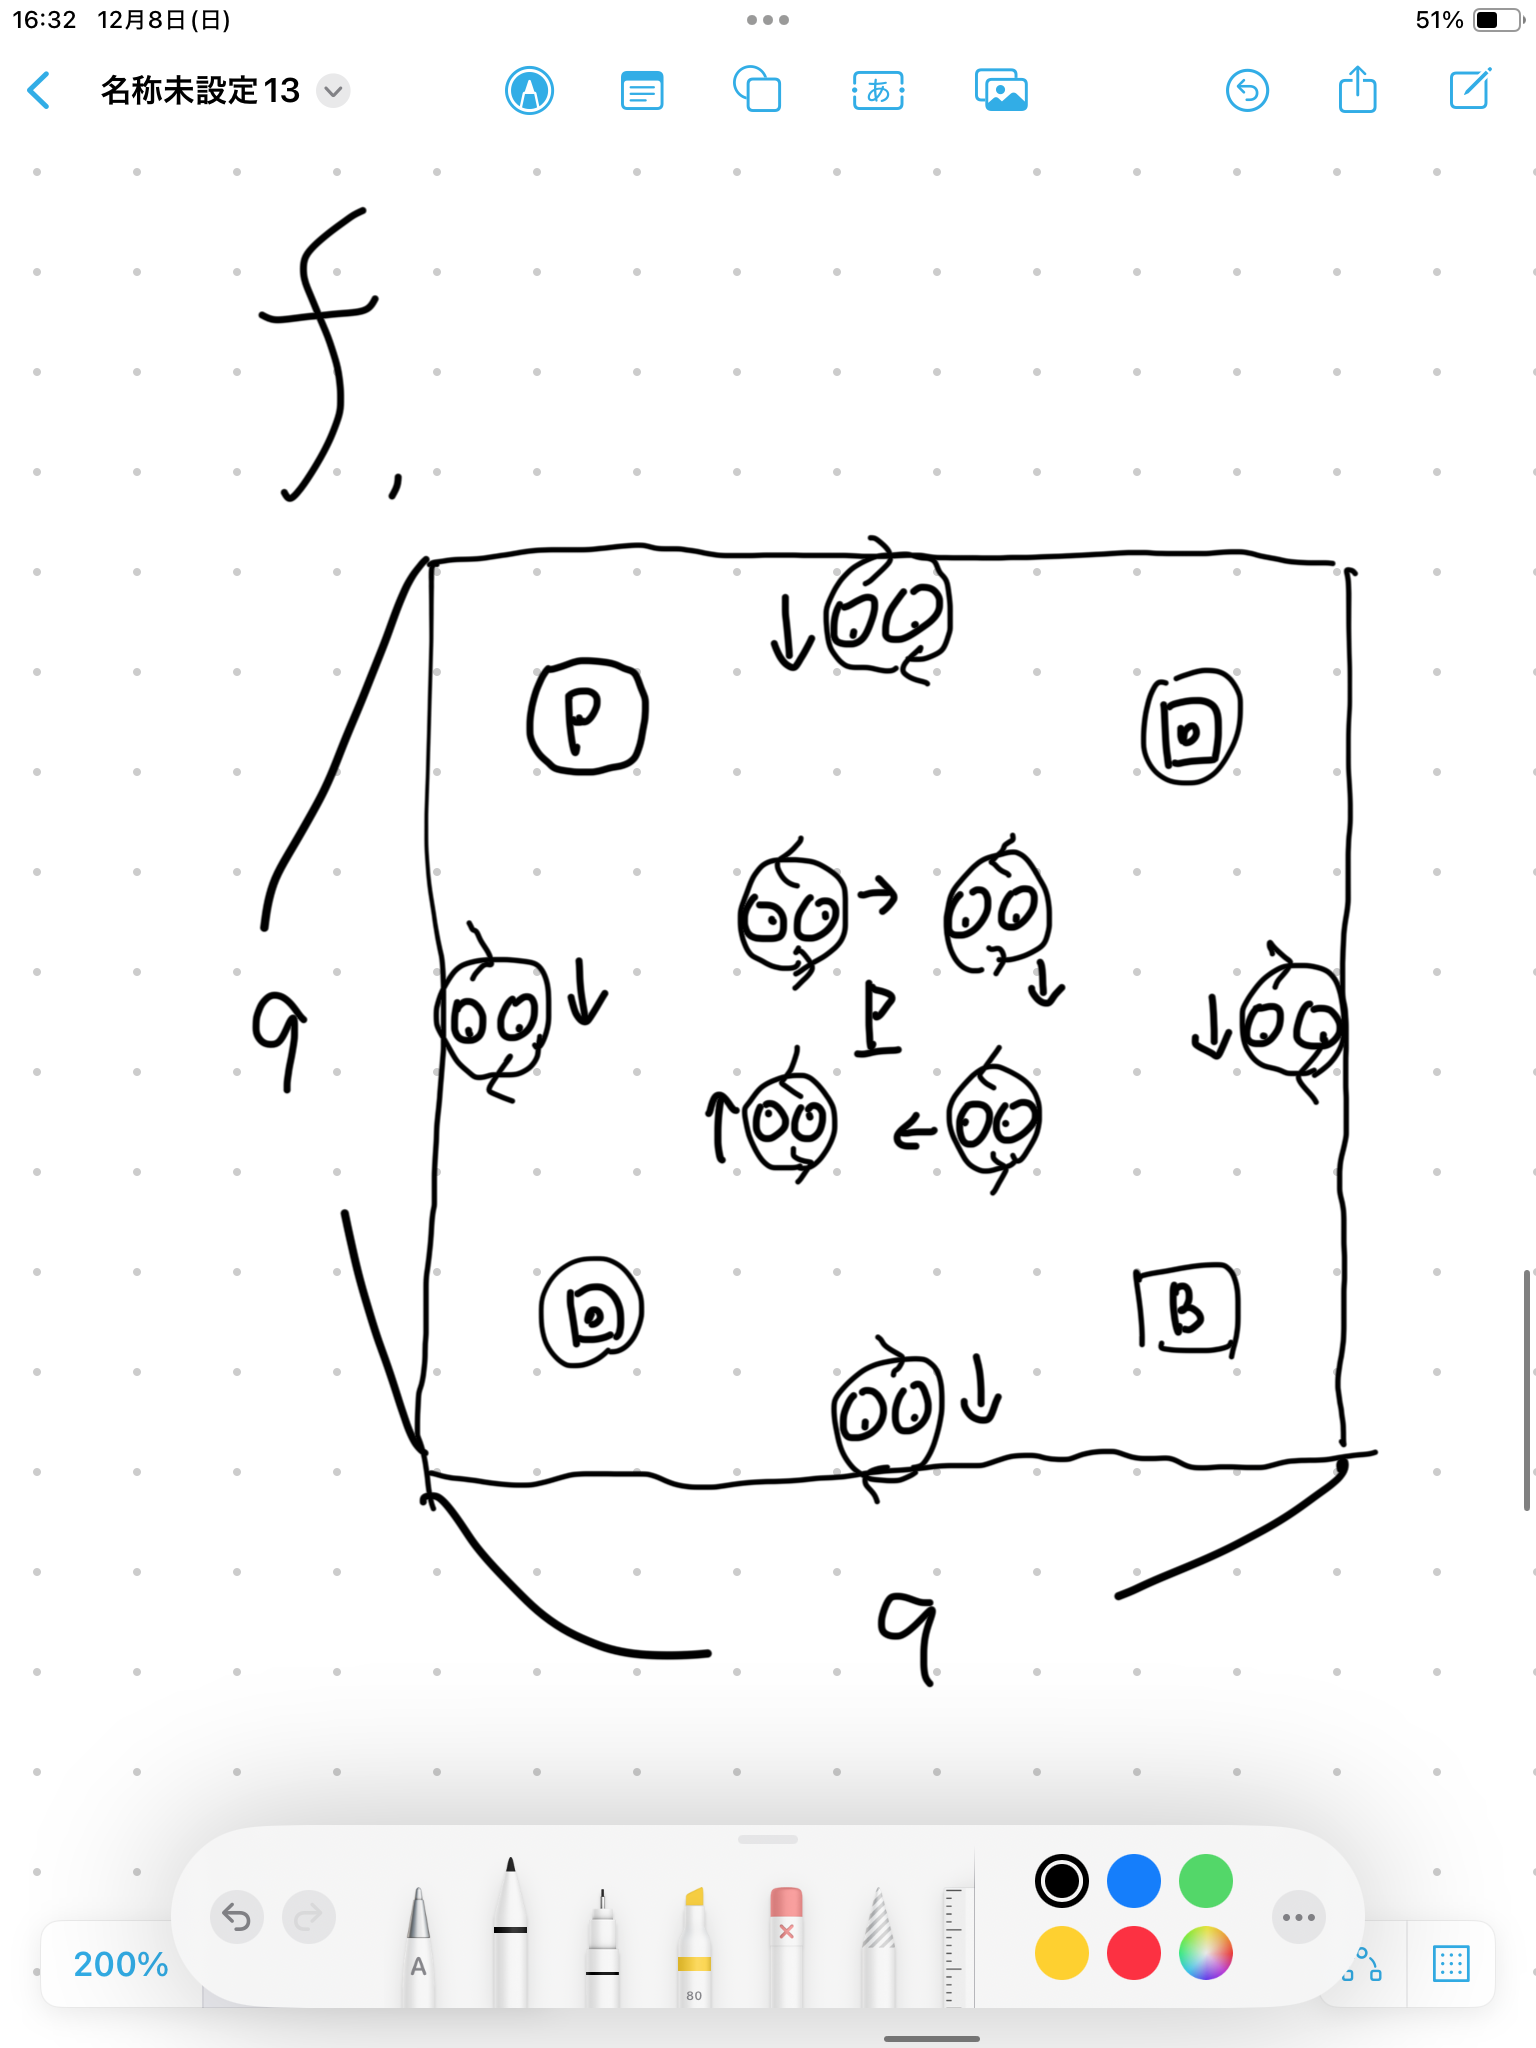 16:32 12月8日(日) 51%
名称未設定 13
あ
f,
P
D
9
P
D
B
9
200%
A
80